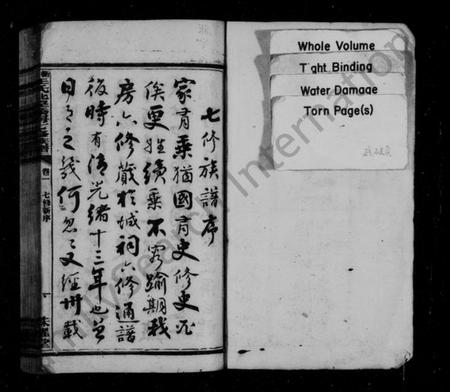 七修族譜序
家有乘猶國有史修史凡
俟更姓續乘不容踰期我
房六修蕆於城祠六修通譜
後時有清光緒十三年也
日之之幾何忽又經卅載
卷一
七修新序
Whole Volume
Tight Binding
Water Damage
Torn Page(s)